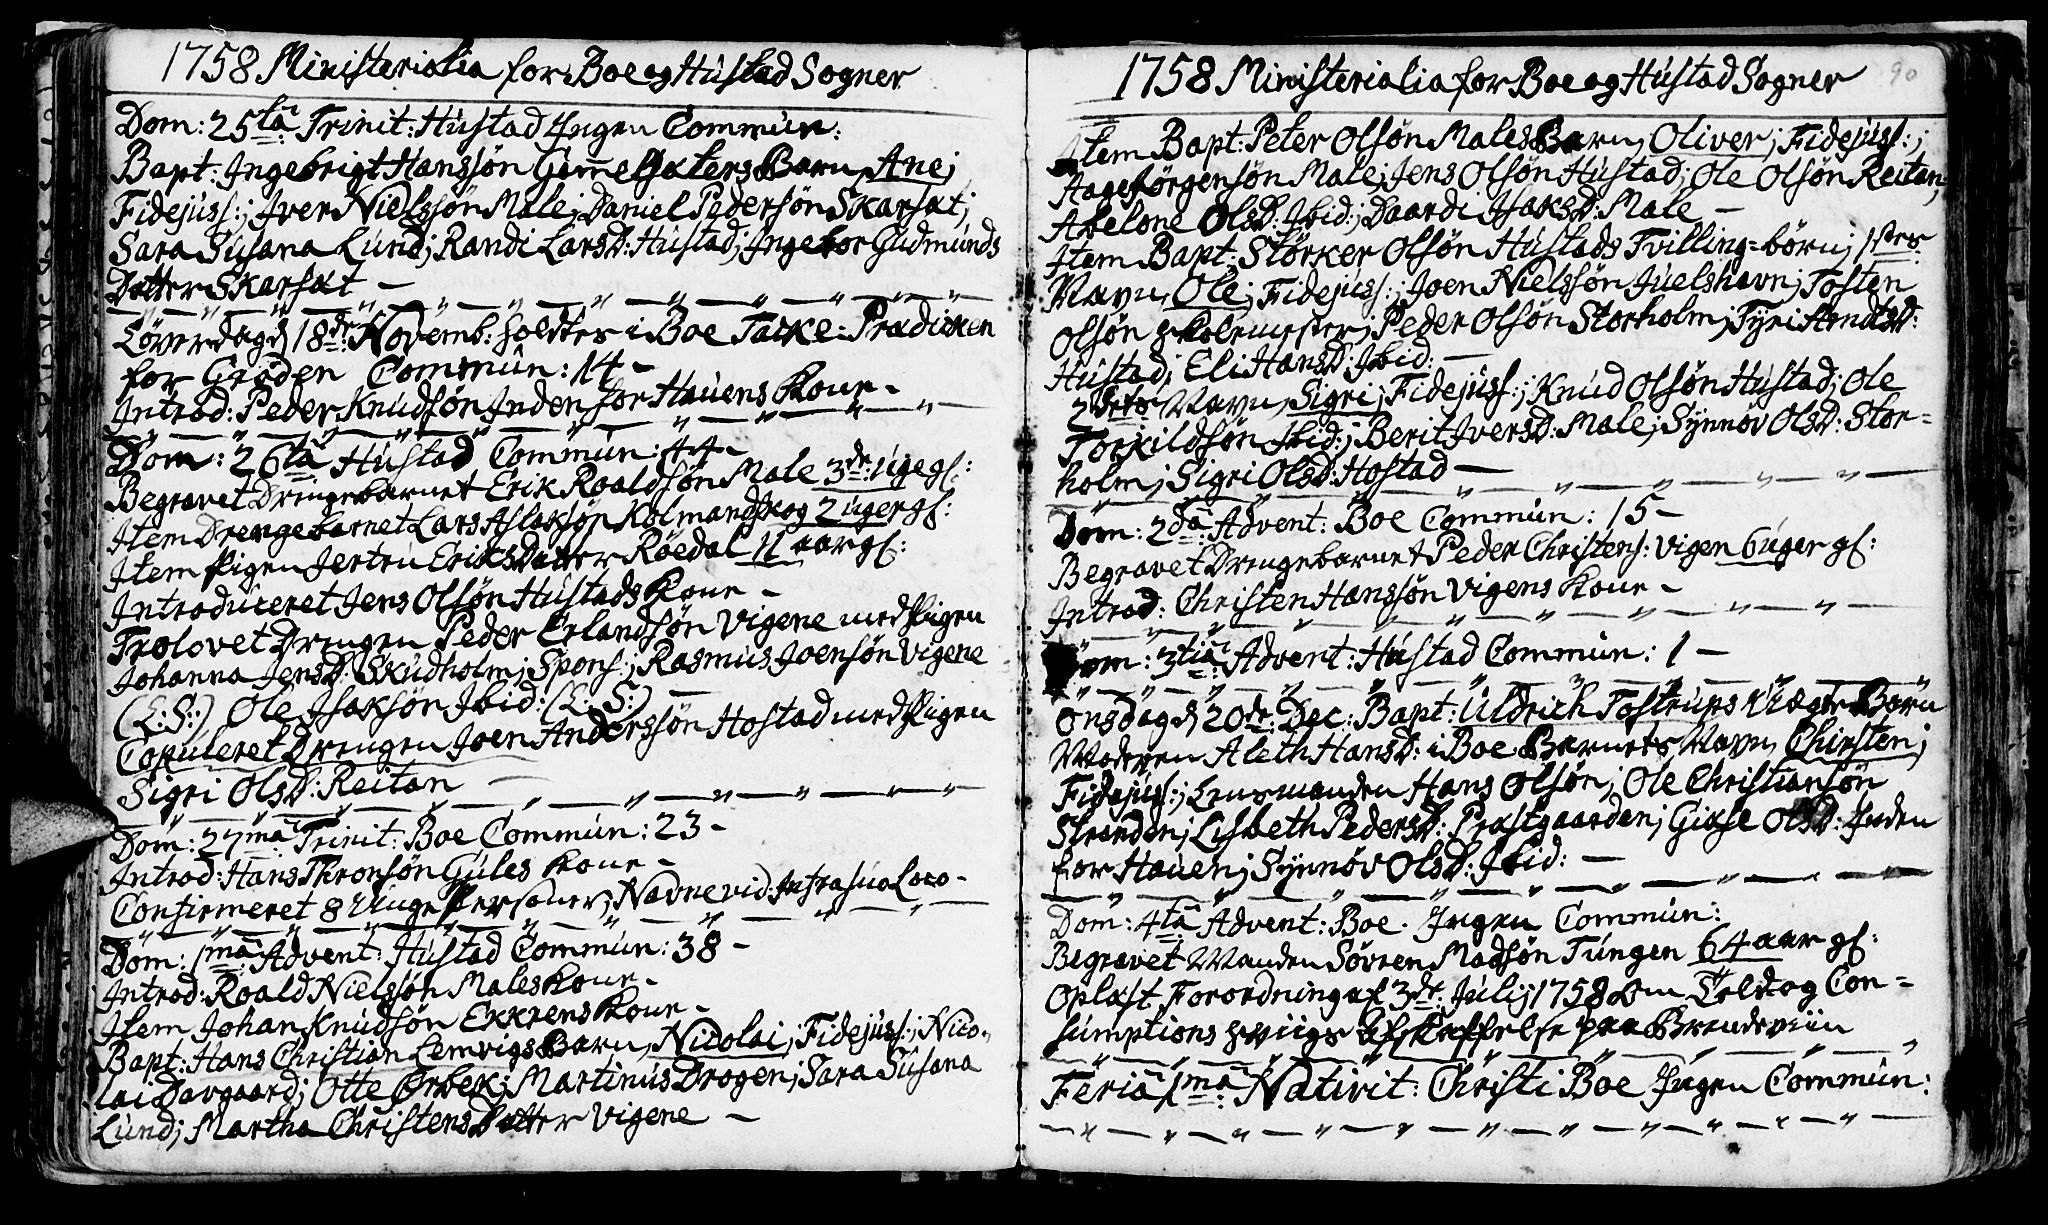 1758 Ministerialia for Boe og Hústad Sogner
Dom: 25ta Trinit: Hústad Ingen Commún:
Bapt: Ingebrigt Hanssön Gam̅elsæters Barn, Ane;
Fidejúss:; Iver Nielssön Male; Daniel Pedersön Skarsæt;
Sara Súsana Lúnd; Randi Larsd: Hústad; Ingebor Gúdmúnds
Datter Skarsæt –
Löverdag d 18de Novemb: holdtes i Boe Tacke-Prædicken
for Gröden Commún: 14 –
Introd: Peder Knúdsön Inden for Hauens Kone –
Dom: 26ta Hústad Commún: 44 –
Begravet Drengebarnet Erik Roaldsön Male 3de Uge gl:
Item Drengebarnet Lars Aslaksön Kolmandskog 2 úger gl:
Item Pigen Jertrú Eriks Datter Röedal 11 aar gl:
Introdúceret Jens Olsön Hústads Kone –
Trolovet Drengen Peder Erlandsön Vigene med Pigen
Johanna Jensd: Skúdholm; Spons:; Rasmús Joensön Vigene
(L:S:) Ole Isaksön Ibid: (L:S:) –
Copúleret Drengen Joen Anderssön Hostad med Pigen
Sigri Olsd: Reitan –
Dom: 27ma Trinit: Boe Commún: 23 –
Introd: Hans Thronsön Gúles Kone –
Confirmeret 8 Unge Personer; Navne vid: Infra súo Loco –
Dom: 1ma Advent: Hústad Commún: 38 –
Introd: Roald Nielssön Males Kone –
Item Johan Knúdsön Ekrens Kone –
Bapt: Hans Christian Lemvigs Barn, Nicolai; Fidejúss:; Nico-
lai Davgaard; Otte Ørbek; Martinús Drogen; Sara Súsana
Lúnd; Martha Christens Datter Vigene –
1758 Ministerialia for Boe og Hústad Sogner
90
Item Bapt: Peter Olsön Males Barn, Oliver; Fidejúss:;
Aage Jörgensön Male; Jens Olsön Hústad; Ole Olsön Reitan;
Abelone Olsd: Ibid:; Baardi Isaksd: Male –
Item Bapt: Störker Olsön Hústads Tvilling-börn; 1stes
Navn, Ole; Fidejúss:; Joen Nielssön Júelshavn; Tosten
Olsön Skolemester; Peder Olsön Storholm; Tyri Arndtsd:
Hústad; Eli Hansd: Ibid: –
2dets Navn, Sigri; Fidejúss:; Knúd Olsön Hústad; Ole
Torkildsön Ibid:; Berit Iversd: Male; Synnöv Olsd: Stor-
holm; Sigri Olsd: Hostad –
Dom: 2da Advent: Boe Commún: 15 –
Begravet Drengebarnet Peder Christens: Vigen 6 úger gl:
Introd: Christen Hanssön Vigens Kone –
Dom: 3tia Advent: Hústad Commún: 1 –
Onsdag d 20de Dec: Bapt: Uldrich Tostrúps Uægte Barn
Moderen Aleth Hansd: i Boe Barnets Navn, Chirsten;
Fidejúss:; Lensmanden Hans Olsön; Ole Christiansön
Stranden; Lisbeth Pedersd: Præstgaarden; Gixse Olsd: Inden
for Hauen; Synnöv Olsd: Ibid: –
Dom: 4ta Advent: Boe. Ingen Commún:
Begravet Manden Sövren Madsön Túngen 64 aar gl:
Oplæst Forordning af 3de Júlij 1758 om Told og Con-
súmptions Sviigs Afskaffelse paa Brendeviin
Feria 1ma Nativit: Christi Boe Ingen Commún: